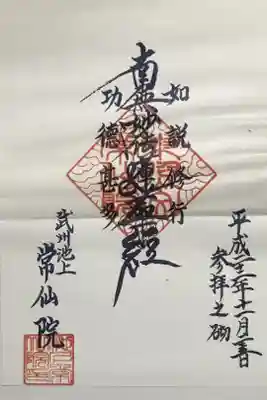 平成年十一月
参拝之砌
如説修行
南無妙法蓮華経
功徳甚多
武州池上
常仙院